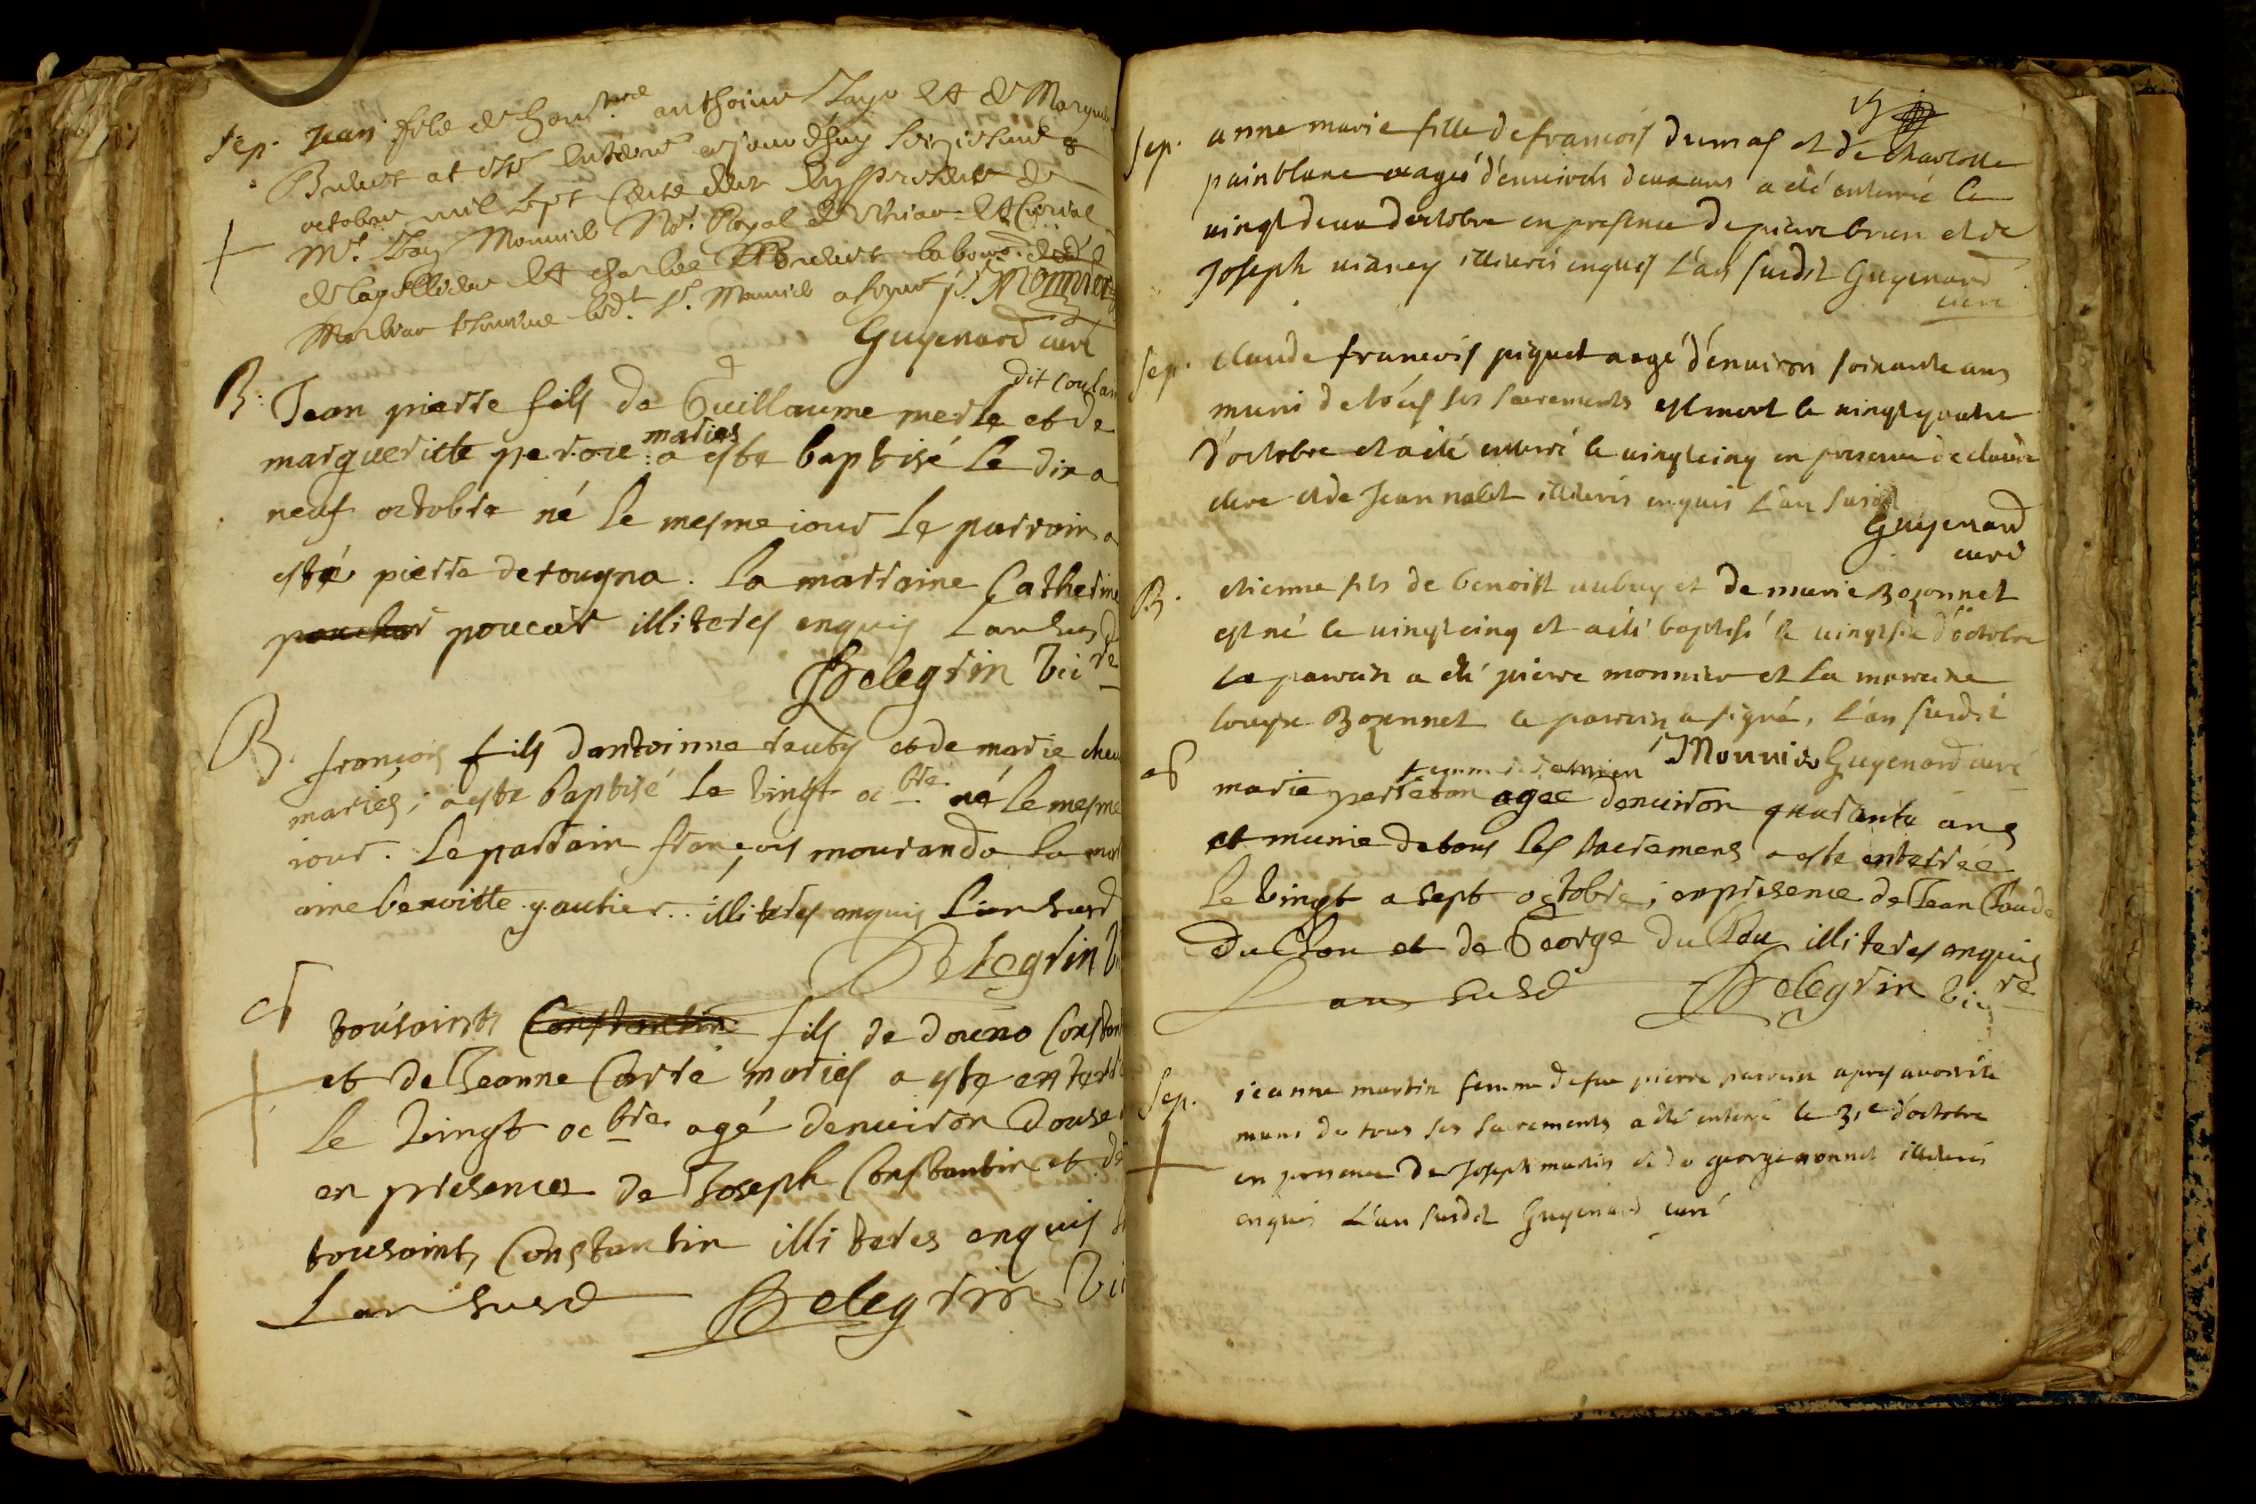 Sep. Jean fils de hon.ble anthoine Zay et de Margueri
Brulier at esté enterré ajourdhuy seizieme
octobre mil sept cents deux en presence de
M.e Zay Monnier No.re Royal de et
de et charles
ledt. Sr. Monnier a signé Monnier
Guyenard curé
dit constan
B. Jean pierre fils de Guillaume merle et de
margueritte peroie mariés a este baptisé le dix a
neuf octobre né le mesme iour le parrain a
esté pierre detougna. la marraine Catherine
pouchar poucat illiteres enquis Lan susd
Pelegrin vicre
B. françois fils dantoinne et de marie
mariés, a este baptisé le vingt oc bre né le mesme
iour. Le parrain françois mouranda la mar
aine benoitte gautier. illiteres enquis L'an susd
Pelegrin vi
tousaints Constantin fils de Constan
et de Jeanne Carré mariés a este enterré
le vingt oc bre agé denuiron douse
en presence de Joseph Constantin et de
tousaints Constantin illiteres enquis
Lan susd Pelegrin vi
Sep. anne marie fille de françois dumas et de charlotte
painblanc aagée d'enuiron deux ans a eté enterrée le
uingt deux d'octobre en presence de pierre brun et de
Joseph illiterés enquis L'an susdit Guyenard
curé
Sep. claude francois piquet aagé d'enuiron soixante ans
muni de tous ses sacrements est mort le uingt quatre
d'octobre et a eté enterré le uingt cinq en presence de claude
clerc et de Jean nalet illiterés enquis L'an susdit
Guyenard
curé
B. etienne fils de benoist aubry et de marie Bozonnet
est né le uingt cinq et a eté baptisé le uingt six d'octobre
le parrain a eté pierre monnier et la marraine
louyse Bozonnet le parrain a signé, l'an susdit
Monnier Guyenard curé
femme
marie perreton agee denuiron quarante ans
et munie de tous les sacremens a este enterrée
le vingt a sept octobre, en presence de Jean Claude
Duclou et de George Duclou illiteres enquis
L an susd Pelegrin vicre
Sep. jeanne martin femme de feu pierre parrain apres auoir eté
muni de tous ses sacrements a eté enterré le 31e d'octobre
en presence de Joseph martin et de george illiterés
enquis L'an susdit Guyenard curé